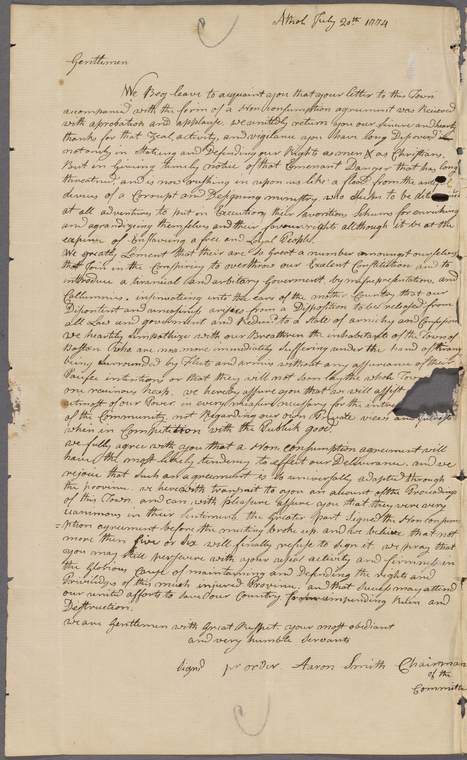 Athol July 20th 1774
Gentlemen
We Beg leave to acquaint you that your letter to this Town
accompanied with the form of a Non Consumption agreement was Received
with aprobation and applause. We unitedly return you our sincere and hearty
thanks for that Zeal, activity, and vigelance you have long Discovered
not only in Stateing and Defending our Rights as men & as Christians.
But in Giveing timely notice of that Emenant Danger that has long
threatned, and is now rushing in upon us like a flood from the
devices of a Corrupt and Designing ministry, who seem to be
at all adventures to put in Execution their favorites Schems for enriching
and agrandizing themselves and their favourights although it be at the
expence of Enslaving a free and Loyal People.
We greatly Lement that their are So Great a number amoungst ourselves
that Join in the Conspiricy to overthrow our Exalent Constitution and to
introduce a tiranical and arbitary Government by misrepresentations, and
Callumnies, insinuating into the ears of the mother Country that our
Discontent and uneasiness arises from a Disposition to be released from
all Law and goverment and Reduced to a state of anarchy and Confusion
We heartily simpathize with our Breatheren the inhabetants of the Town of
Boston Who are now more immediately suffering under the hand of
being surrounded by Fleets and armies without any assurance of their
Pacifick intentions or that they will not soon lay the whole Town
one reuinous heap. we hereby assure you that we will assist
utmost of our Power in every measure necessary for the
of the Community not Regarding our own Private views and
when in Competition with the Publick good.
We fully agree with you that a Non Consumption agreement will
have the most likely tendency to effect our Deliverance, and we
rejoice that such an agreement is so universally adapted through
the province. we herewith transmit to you an account of the Proceedings
of this Town. and can with pleasure assure you that they were very
unanimous in their Sentiments the Greater part signed the Non Consum
ption agreement before the meeting broke up. and we believe that not
more then five or six will finally refuse to sign it. we pray that
you may still persevere with your usual activity and firmness in
the Glorious Cause of maintaining and Defending the rights and
Priviledges of this much injured Province. and that success may attend
our united efforts to save our Country from impending Ruin and
Destruction.
We are Gentlemen with Great Respect. your most obediant
and very humble Servants
Signd pr order. Aaron Smith Chairman
of the
Committe